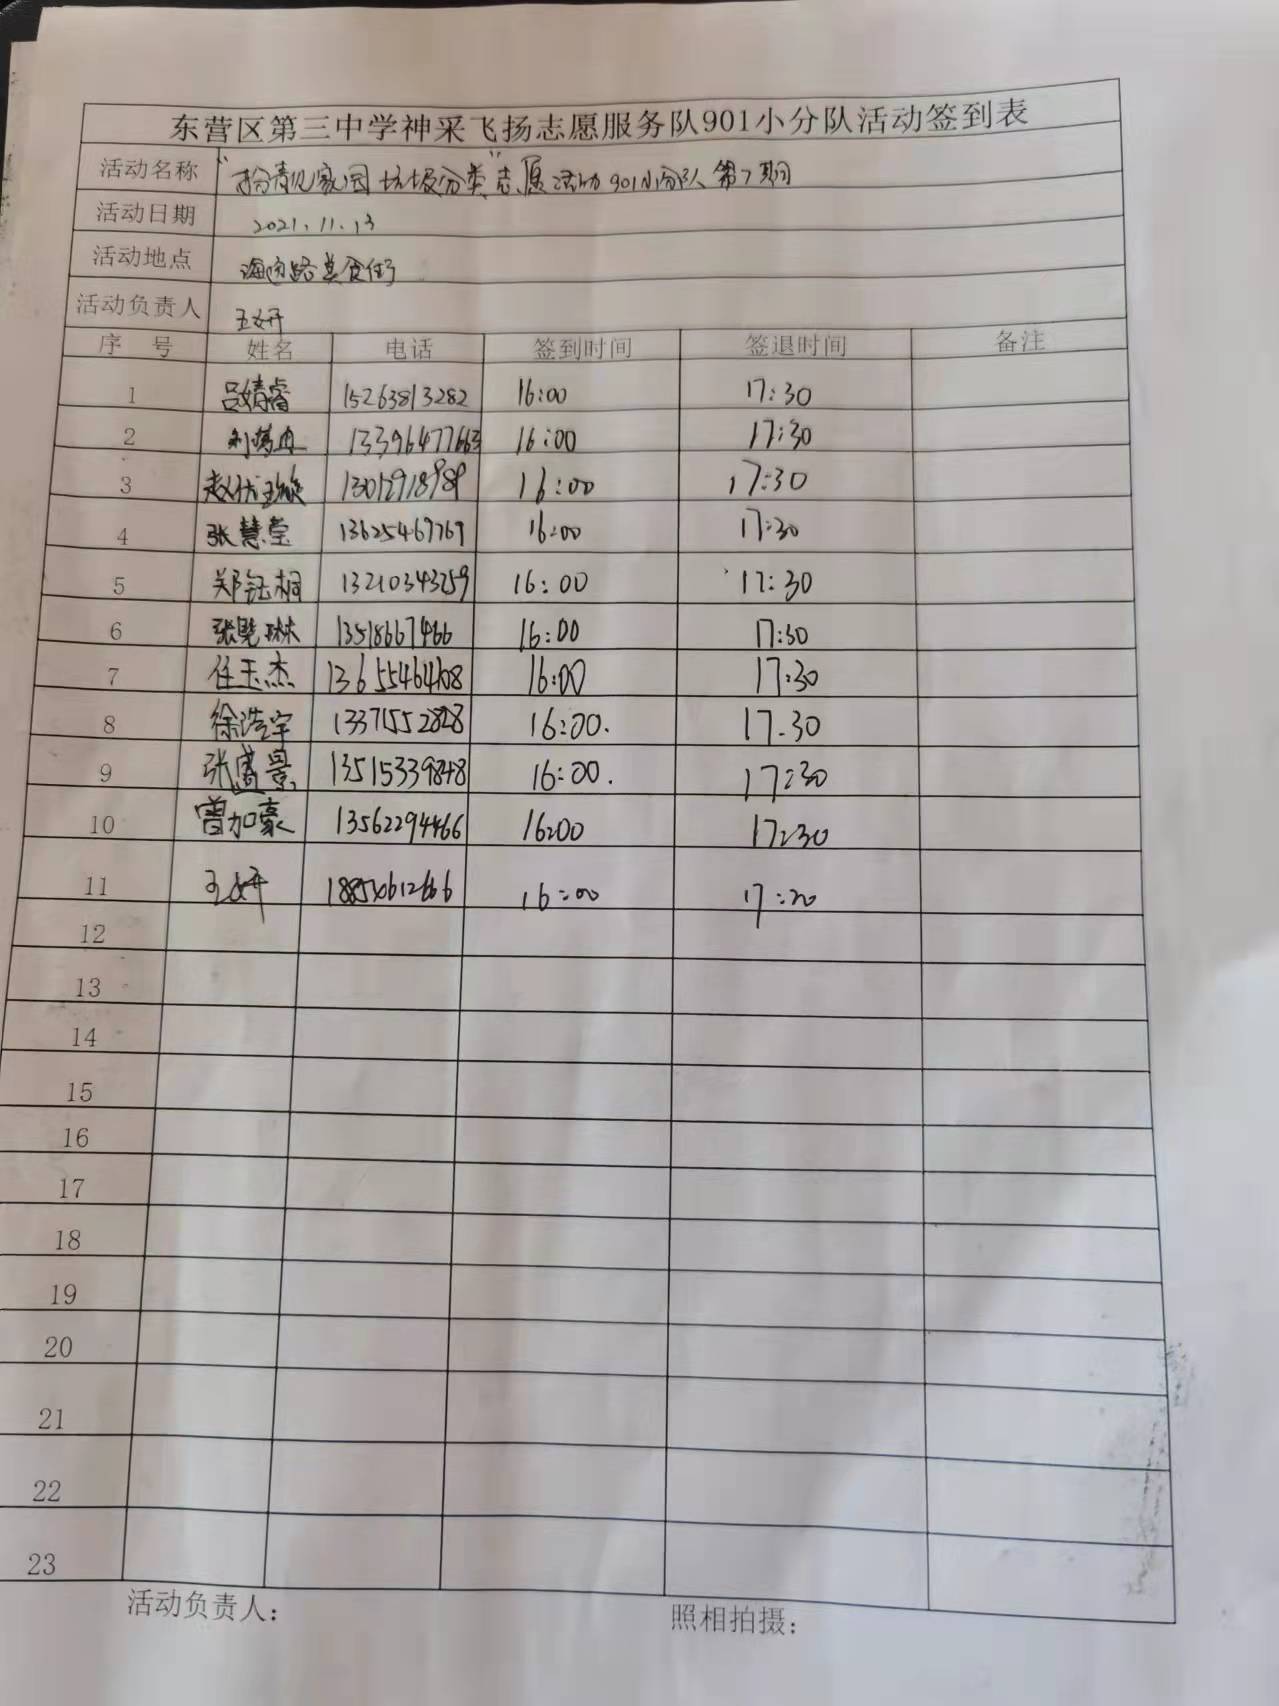 东营区第三中学神采飞扬志愿服务队901小分队活动签到表
活动名称 家园 垃圾分类"志愿活动901小分队第7期
活动日期 2021.11.13
活动地点 美食街
活动负责人 王妍
序 号 姓名 电话 签到时间 签退时间 备注
1 吕婧睿 15263813282 16:00 17:30
2 13396477663 16:00 17:30
3 16:00 17:30
4 张慧莹 13625469769 16:00 17:30
5 郑钰桐 13210343259 16:00 17:30
6 13518667466 16:00 17:30
7 任玉杰 16:00 17:30
8 徐浩宇 16:00. 17.30
9 张盛景 16:00. 17:30
10 曾加豪 13562294466 16:00 17:30
11 王妍 16:00 17:30
12
13
14
15
16
17
18
19
20
21
22
23
活动负责人: 照相拍摄: